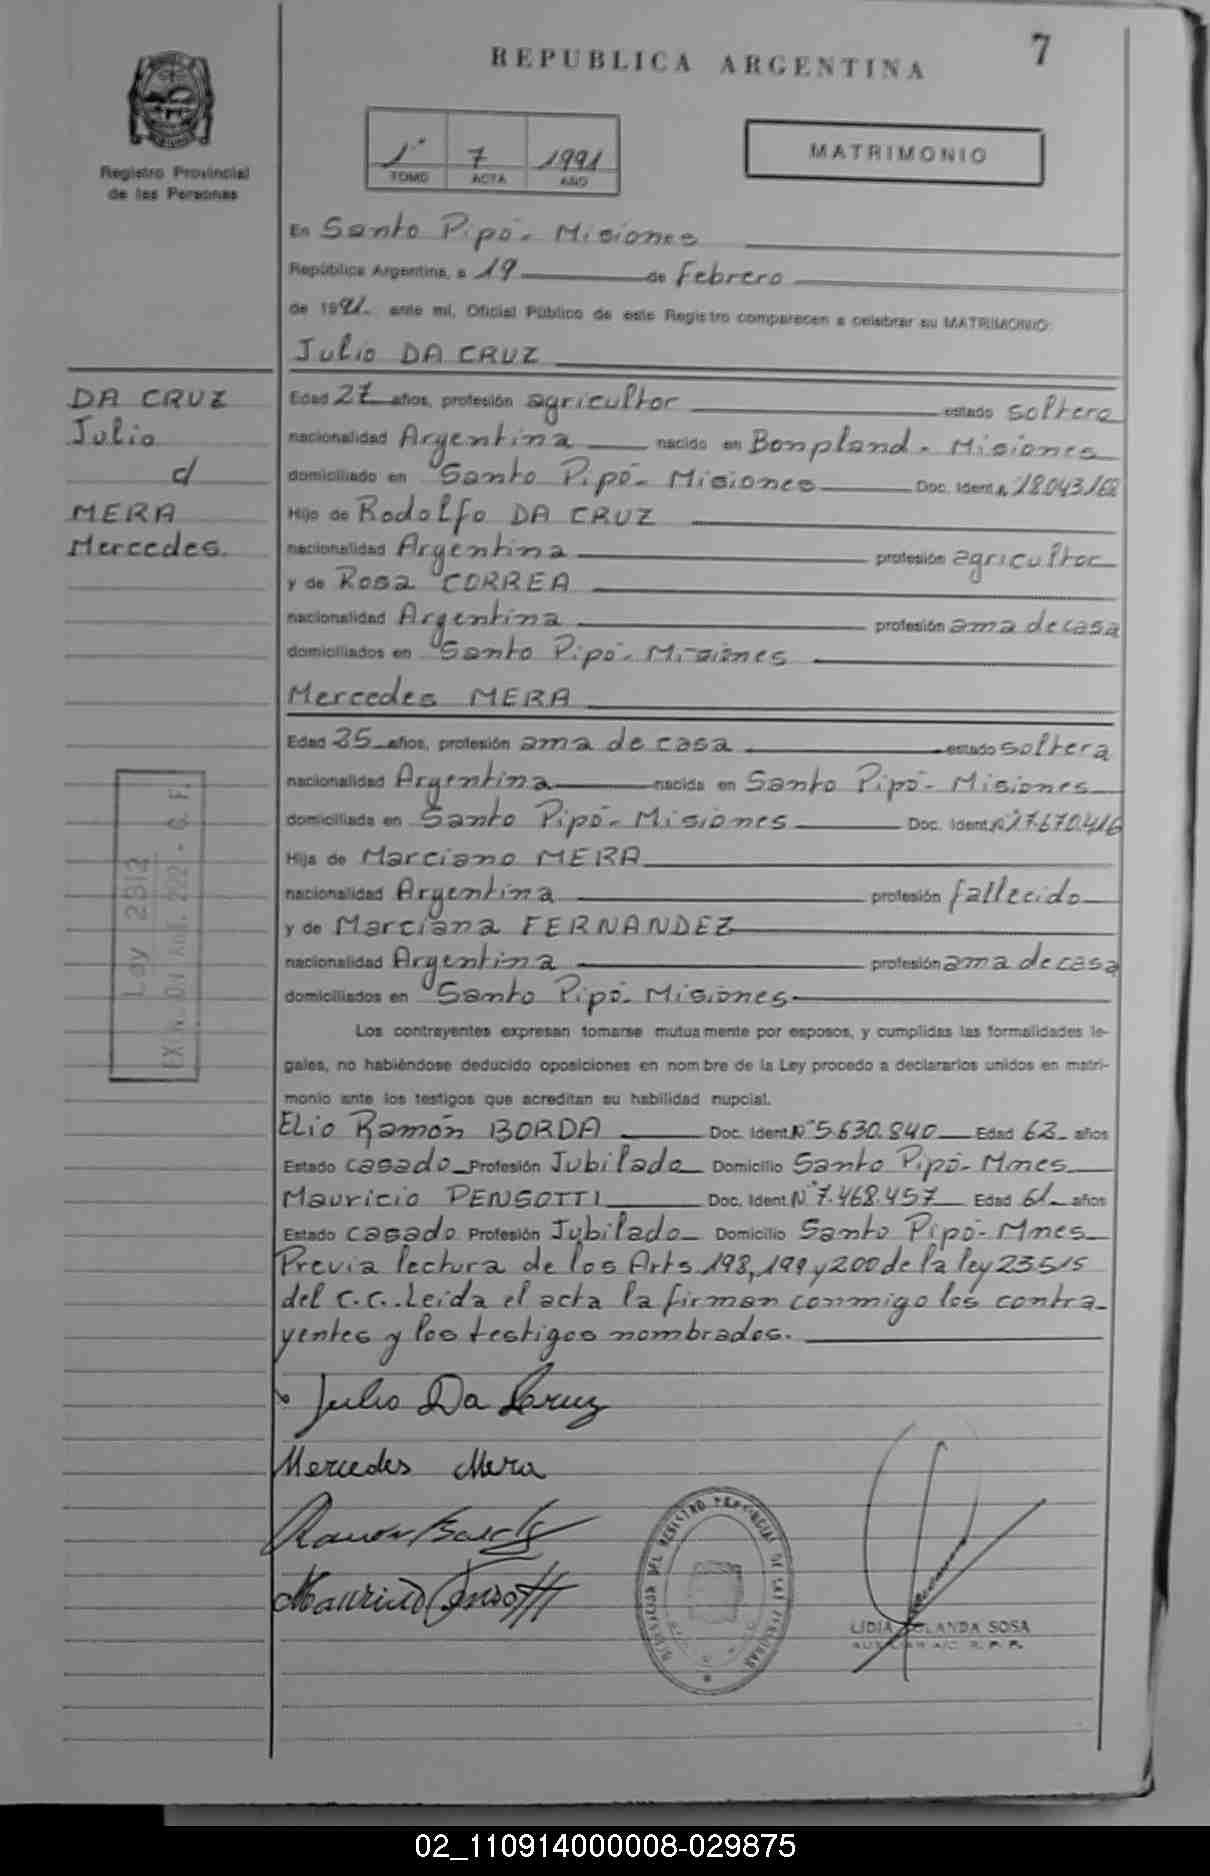 7
REPUBLICA ARGENTINA
Registro Provincial
de las Personas
1° 7 1991
TOMO ACTA AÑO
MATRIMONIO
En Santo Pipó - Misiones
República Argentina, a 19 de Febrero
de 1991 ante mí, Oficial Público de este Registro comparecen a celebrar su MATRIMONIO:
Julio DA CRUZ
DA CRUZ
Julio
MERA
Mercedes.
Edad 27 años, profesión agricultor estado soltero
nacionalidad Argentina nacido en Bonpland - Misiones
domiciliado en Santo Pipó - Misiones Doc. Ident. N° 18.043.168
Hijo de Rodolfo DA CRUZ
nacionalidad Argentina profesión agricultor
y de Rosa CORREA
nacionalidad Argentina profesión ama de casa
domiciliados en Santo Pipó - Misiones
Mercedes MERA
Edad 25 años, profesión ama de casa estado soltera
nacionalidad Argentina nacida en Santo Pipó - Misiones
domiciliada en Santo Pipó - Misiones Doc. Ident. N° 17.670.416
Hija de Marciano MERA
nacionalidad Argentina profesión fallecido
y de Marciana FERNANDEZ
nacionalidad Argentina profesión ama de casa
domiciliados en Santo Pipó - Misiones
Ley 2312
Los contrayentes expresan tomarse mutuamente por esposos, y cumplidas las formalidades le-
gales, no habiéndose deducido oposiciones en nombre de la Ley procedo a declararlos unidos en matri-
monio ante los testigos que acreditan su habilidad nupcial.
Elio Ramón BORDA Doc. Ident. N° 5.630.840 Edad 63 años
Estado casado Profesión Jubilado Domicilio Santo Pipó - Mnes
Mauricio PENSOTTI Doc. Ident. N° 7.468.457 Edad 61 años
Estado casado Profesión Jubilado Domicilio Santo Pipó - Mnes
Previa lectura de los Arts. 198, 199 y 200 de la ley 23515
del C.C. Leida el acta la firman conmigo los contra-
yentes y los testigos nombrados.
Julio Da Cruz
Mercedes Mera
LIDIA YOLANDA SOSA
02_110914000008-029875